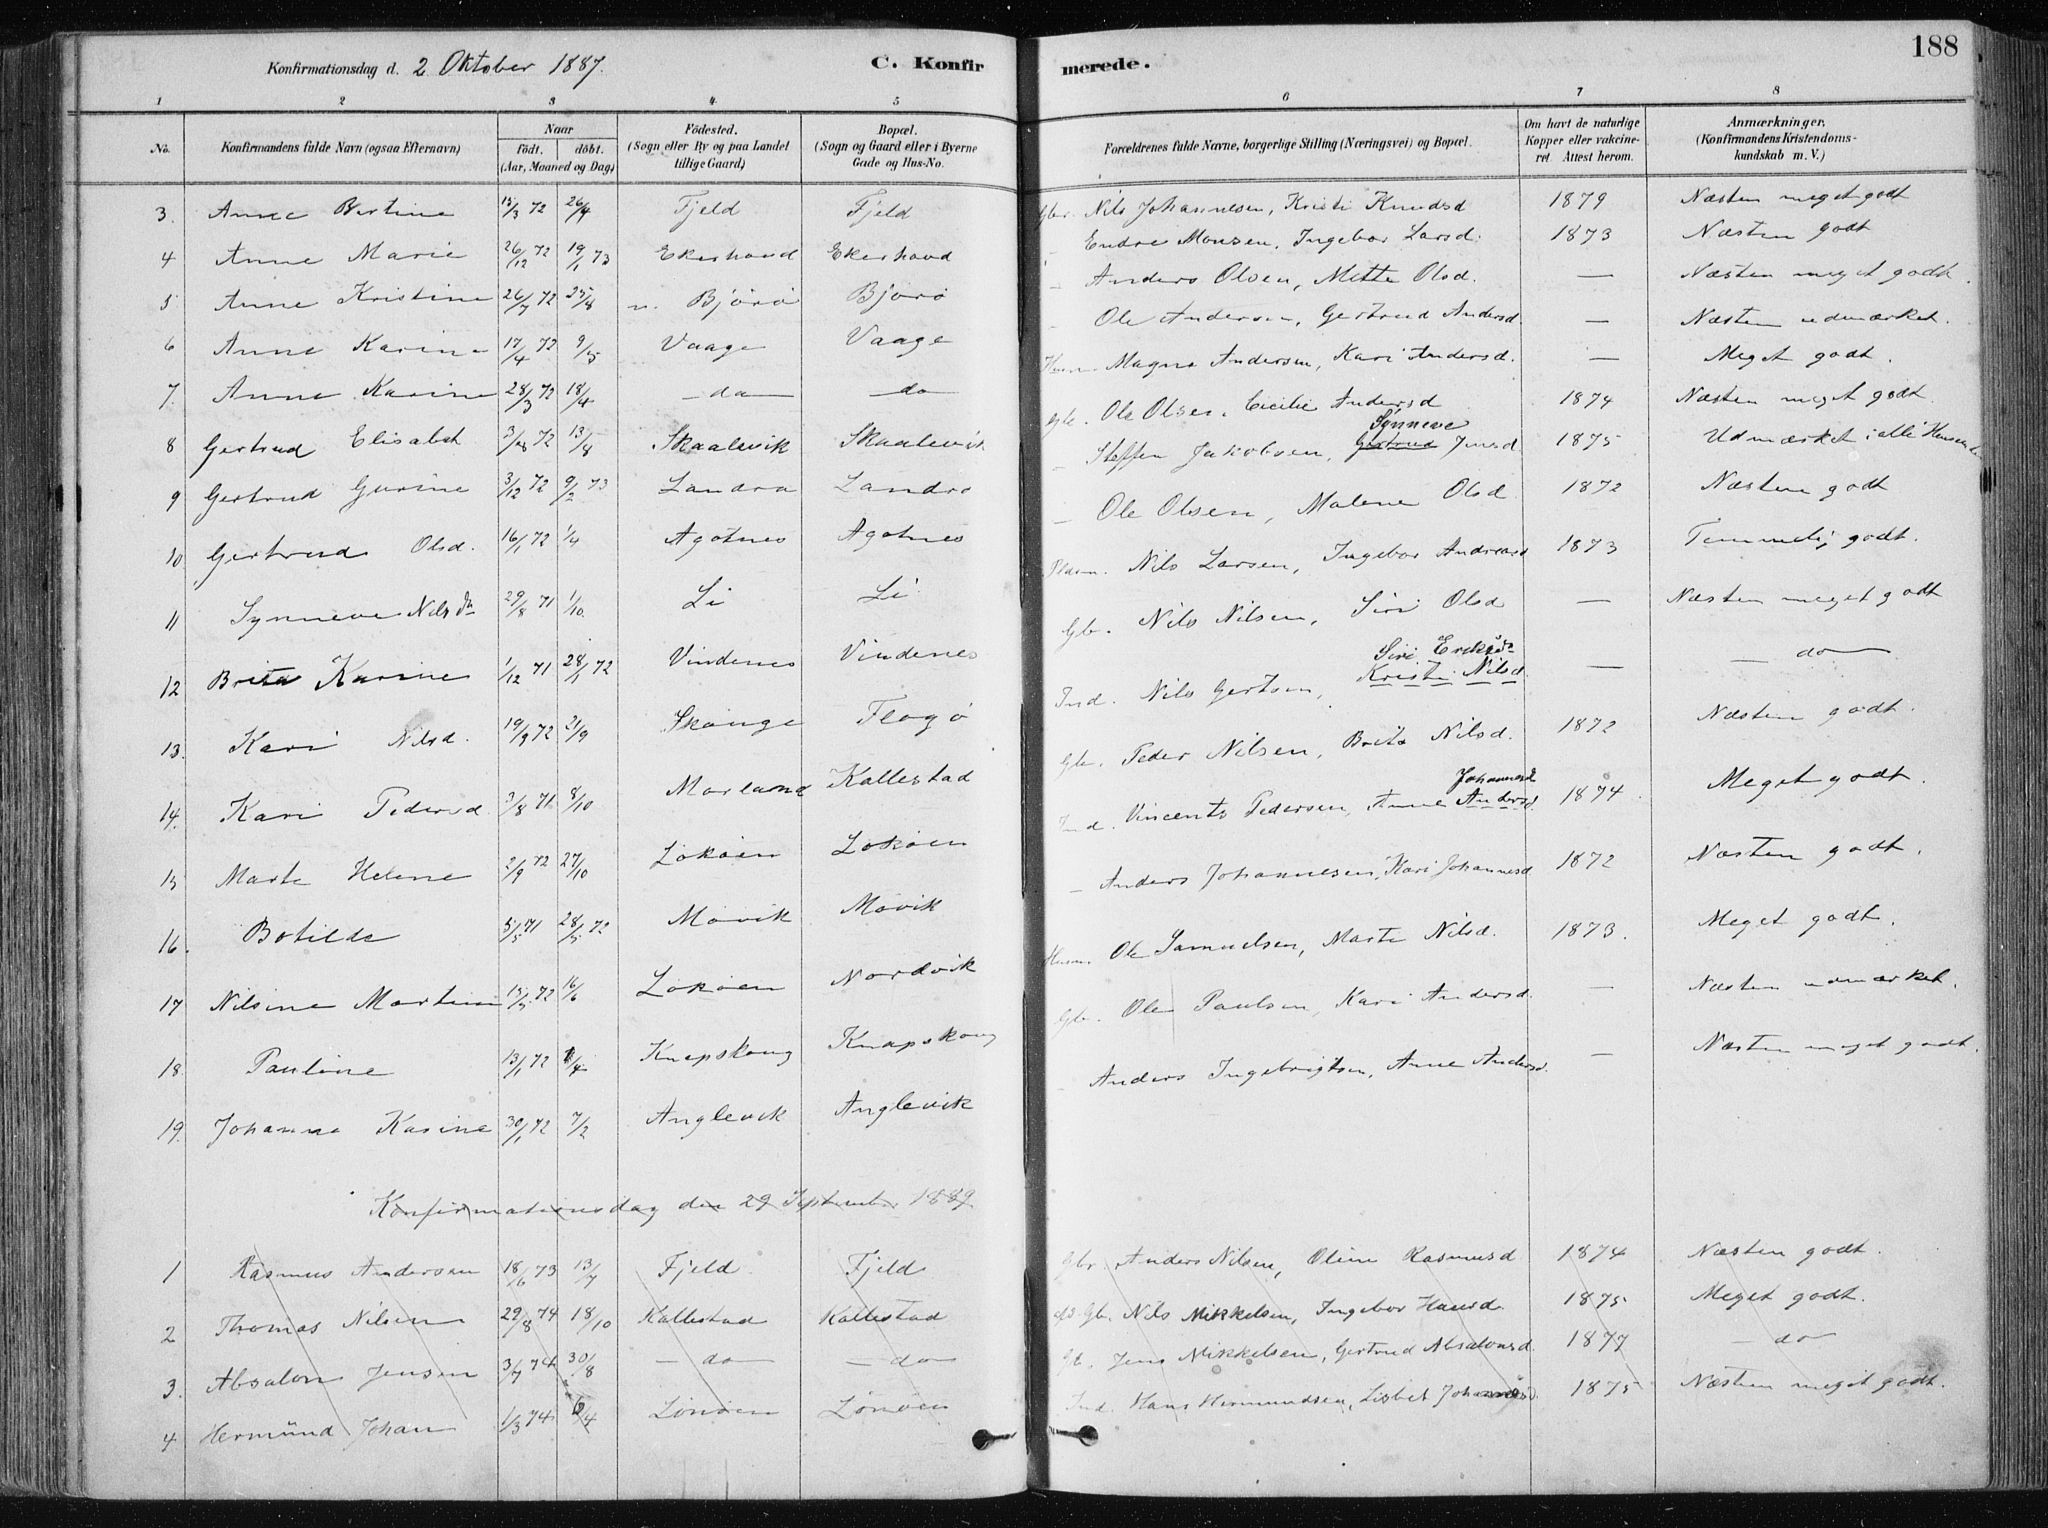 188
Konfirmationsdag d. 2 Oktober 1887. C. Konfirmerede.
1 2 3 4 5 6 7 8
No. Konfirmandens fulde Navn (ogsaa Efternavn) Naar født. døbt. (Aar, Maaned og Dag) Fødested. (Sogn eller By og paa Landet tillige Gaard) Bopæl. (Sogn og Gaard eller i Byerne Gade og Hus-No. Forældrenes fulde Navne, borgerlige Stilling (Næringsvei) og Bopæl. Om havt de naturlige Kopper eller vakcineret. Attest herom. Anmærkninger. (Konfirmandens Kristendomskundskab m. V.)
3. Anne Bertine 15/3 72 26/4 Fjeld Fjeld Gbr. Nils Johannesen, Kristi Knudsd 1879 Næsten meget godt
4 Anne Marie 26/12 72 19/1 73 Ekerhovd Ekerhovd - Endre Monsen, Ingebor Larsd. 1873 Næsten godt
5 Anne Kristine 26/7 72 25/8 n. Bjørø Bjørø - Anders Olsen, Mette Olsd. — Næsten meget godt.
6 Anne Karine 17/4 72 9/5 Vaage Vaage - Ole Andersen, Gertrud Andersd. — Næsten udmærket.
7. Anne Karine 28/3 72 18/4 — do — do Husm. Magne Andersen, Kari Andersd. — Meget godt.
8 Gertrud Elisabet 72 13/8 Skaalevik Skaalevik Gbr. Ole Olsen, Cecilie Andersd 1874 Næsten meget godt.
9 Gertrud Gurine 3/12 72 9/2 73 Landro Landro - Steffen Jakobsen, Gertrud Synneve Jensd 1875 Udmærket i alle
10 Gertrud Olsd. 16/1 72 1/4 Agotnes Agotnes - Ole Olsen, Malene Olsd 1872 Næsten godt
11 Synneve Nilsdtr 29/8 71 1/10. Li Li Pladsm. Nils Larsen, Ingebor Andreasd 1873 Temmelig godt.
12 Brita Karine 1/12 71 28/1 72 Vindenes Vindenes Gb. Nils Nilsen, Siri Olsd — Næsten meget godt
13. Kari Nilsd. 19/9 72 21/9 Skonge Flogø Ind. Nils Gertsen, Siri Eriksdr Kristi Nilsd. — — do —
14. Kari Pedersd 3/8 71 8/10 Morland Kallestad Gb. Peder Nilsen, Brita Nilsd. 1872 Næsten godt.
15 Marte Helene 2/9 72 27/10 Lokøen Lokøen Ind. Vincents Pedersen, Anne Johannesd Andersd. 1874. Meget godt.
16. Botilde 5/5 71 28/5 72 Movik Movik - Anders Johannesen, Kari Johannesd 1872 Næsten godt.
17 Nilsine Martine 15/5 72 16/6 Lokøen Nordvik Husm. Ole Samuelsen, Marte Nilsd. 1873. Meget godt.
18. Pauline 13/1 72 1/4 Knapskong Knapskong Gb. Ole Paulsen, Kari Andersd. — Næsten udmærket.
19. Johanne Karine 30/1 72 7/2 Anglevik Anglevik Anders Ingebrigtsen, Anne Andersd. — Næsten meget godt.
Konfirmationsdag den 29 September 1889
1 Rasmus Andersen 18/6 73 13/7 Fjeld Fjeld Gbr. Anders Nilsen, Oline Rasmusd 1874 Næsten godt.
2 Thomas Nilsen 29/8 74 18/10 Kallestad Kallestad Gb. Nils Mikkelsen, Ingebor Hansd. 1875 Meget godt.
3. Absalon Jensen 3/7 74 30/8 — do — — do — Gb. Jens Mikkelsen, Gertrud Absalonsd. 1877 — do
4 Hermund Johan 1/3 74 6/4 Lønøen Lønøen Ind. Hans Hermundsen, Lisbet Johannesd. 1875 Næsten meget godt.